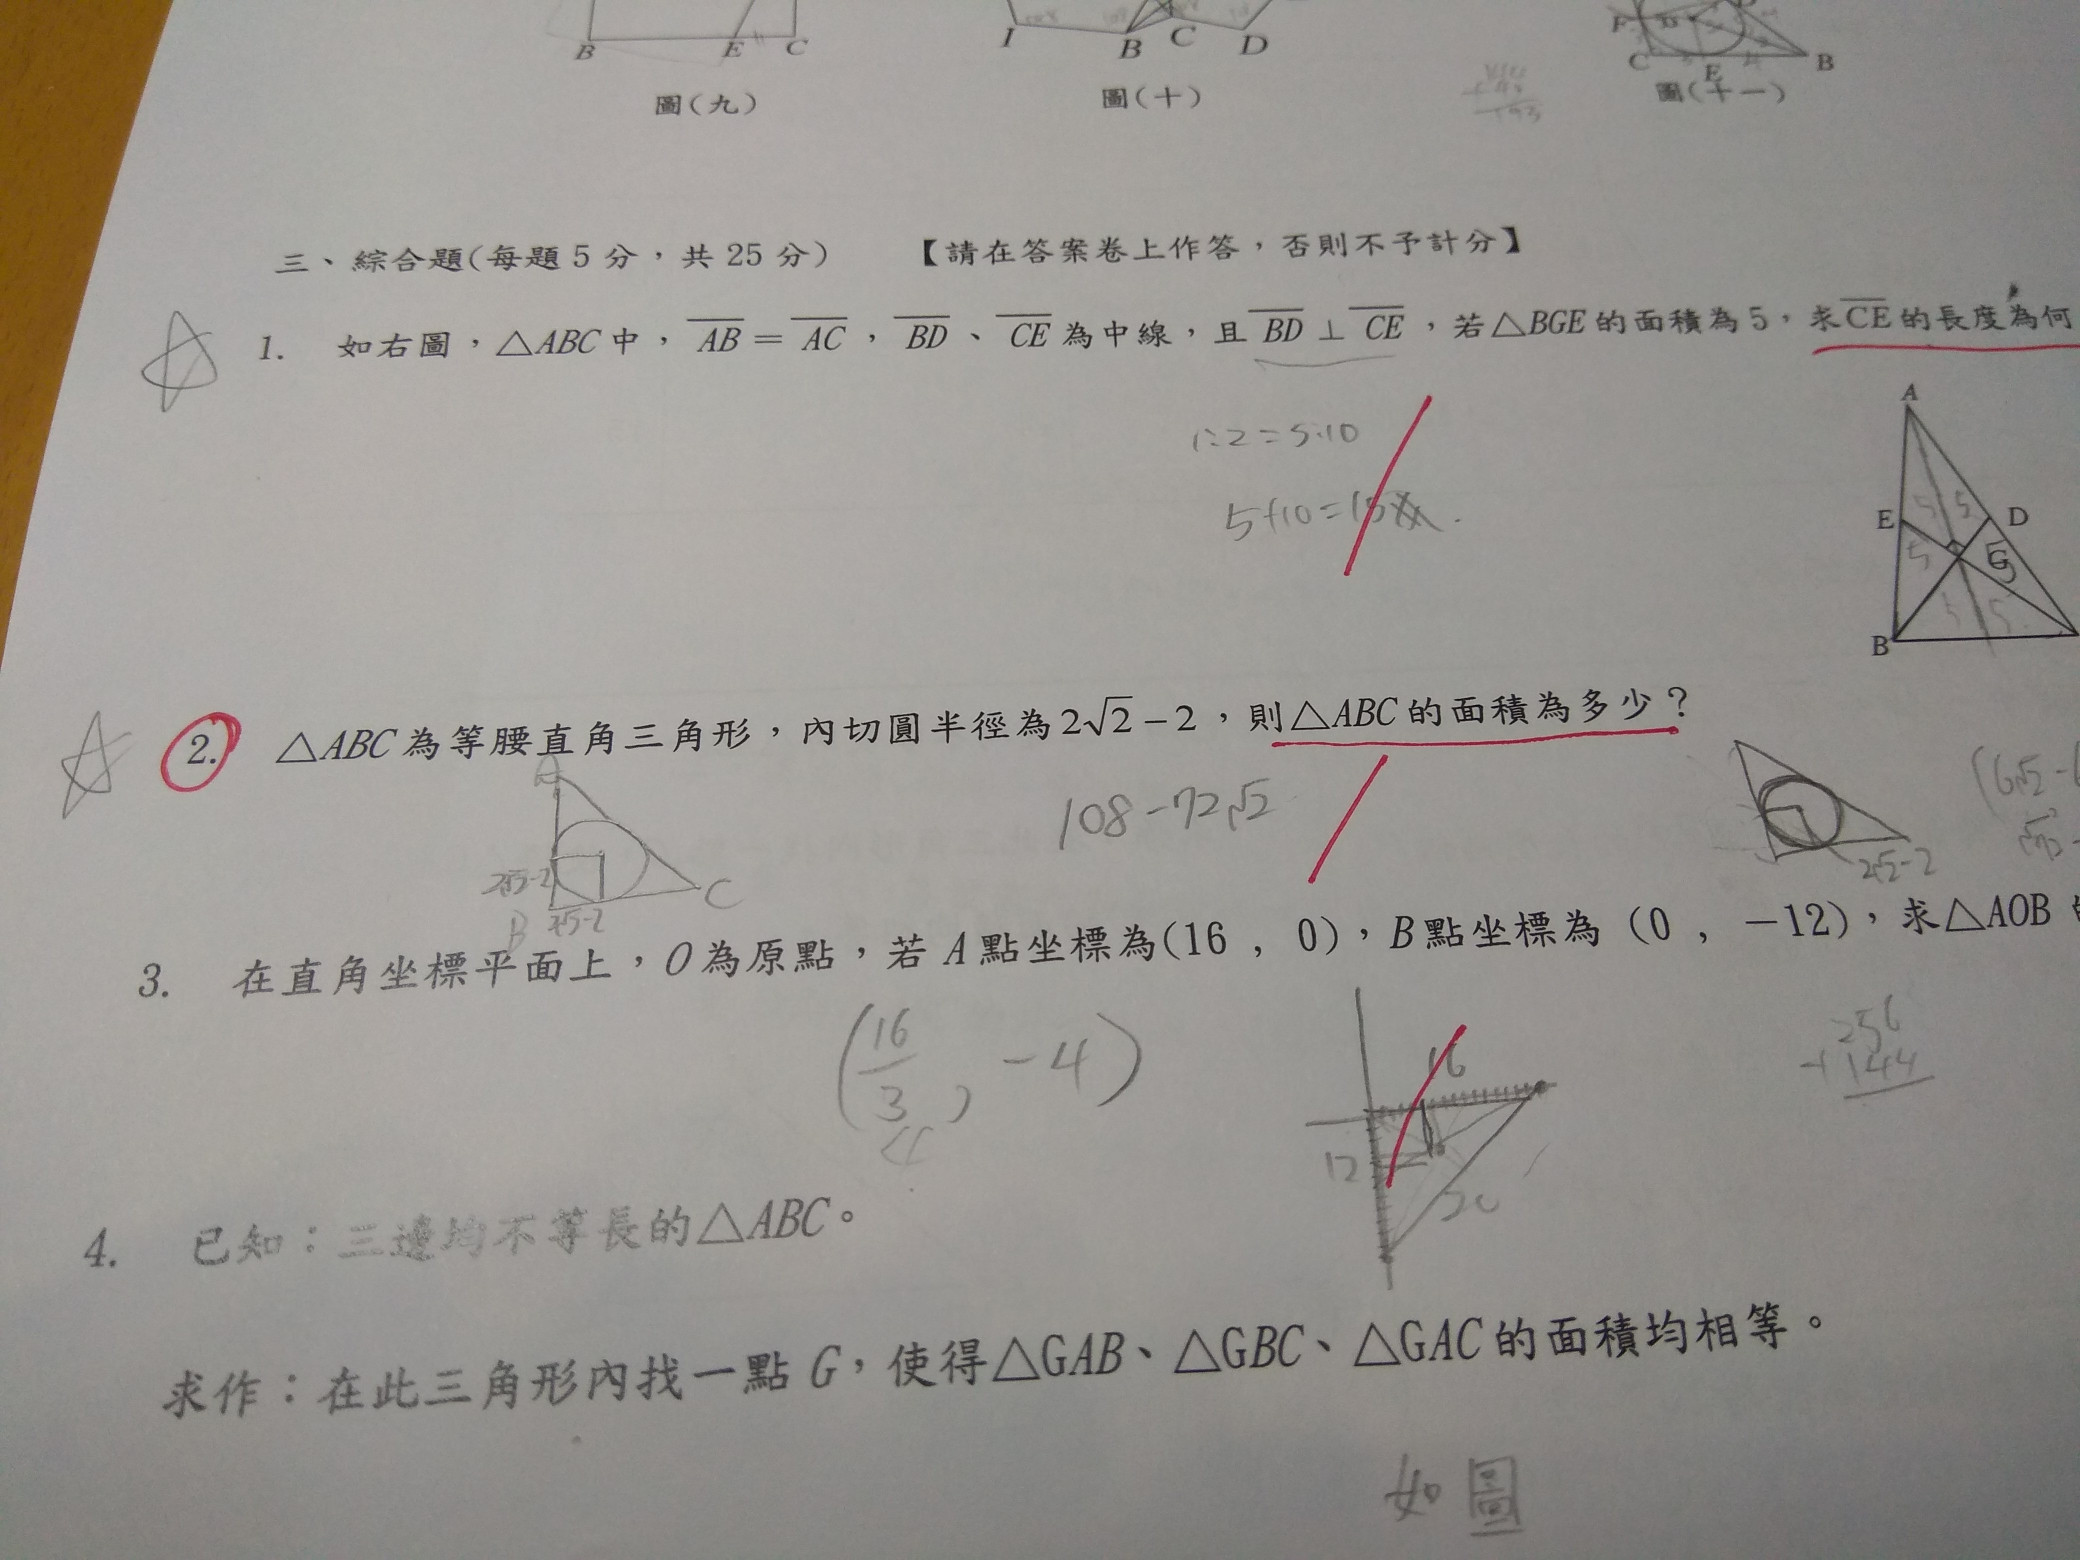 B E C
I B C D
F D C E B
圖(九) 圖(十) 圖(十一)
三、綜合題(每題 5 分，共 25 分) 【請在答案卷上作答，否則不予計分】
1. 如右圖，△ABC 中， AB = AC ， BD 、 CE 為中線，且 BD ⊥ CE ，若△BGE 的面積為 5，求CE的長度為何
1:2=5:10
5+10=15
A
E 5 5 D
5 G
5 5
B
2. △ABC 為等腰直角三角形，內切圓半徑為 2√2 − 2，則△ABC 的面積為多少？
A
108-72√2
2√2-2 C
B 2√2-2
2√2-2
3. 在直角坐標平面上，O 為原點，若 A 點坐標為(16 , 0)，B 點坐標為 (0 , −12)，求△AOB
(16/3, -4)
16
12
20
256
+144
4. 已知：三邊均不等長的△ABC。
求作：在此三角形內找一點 G，使得△GAB、△GBC、△GAC 的面積均相等。
如圖